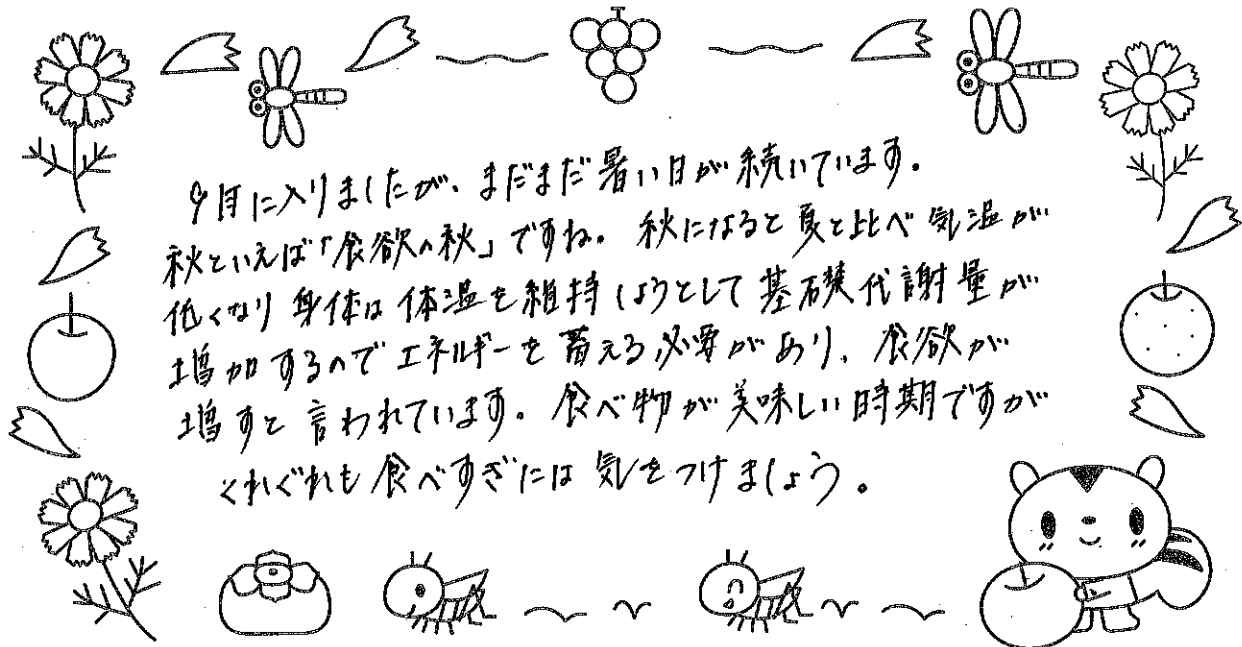 9月に入りましたが、まだまだ暑い日が続いています。
秋といえば「食欲の秋」ですね。秋になると夏と比べ気温が
低くなり身体は体温を維持しようとして基礎代謝量が
増加するのでエネルギーを蓄える必要があり、食欲が
増すと言われています。食べ物が美味しい時期ですが
くれぐれも食べすぎには気をつけましょう。